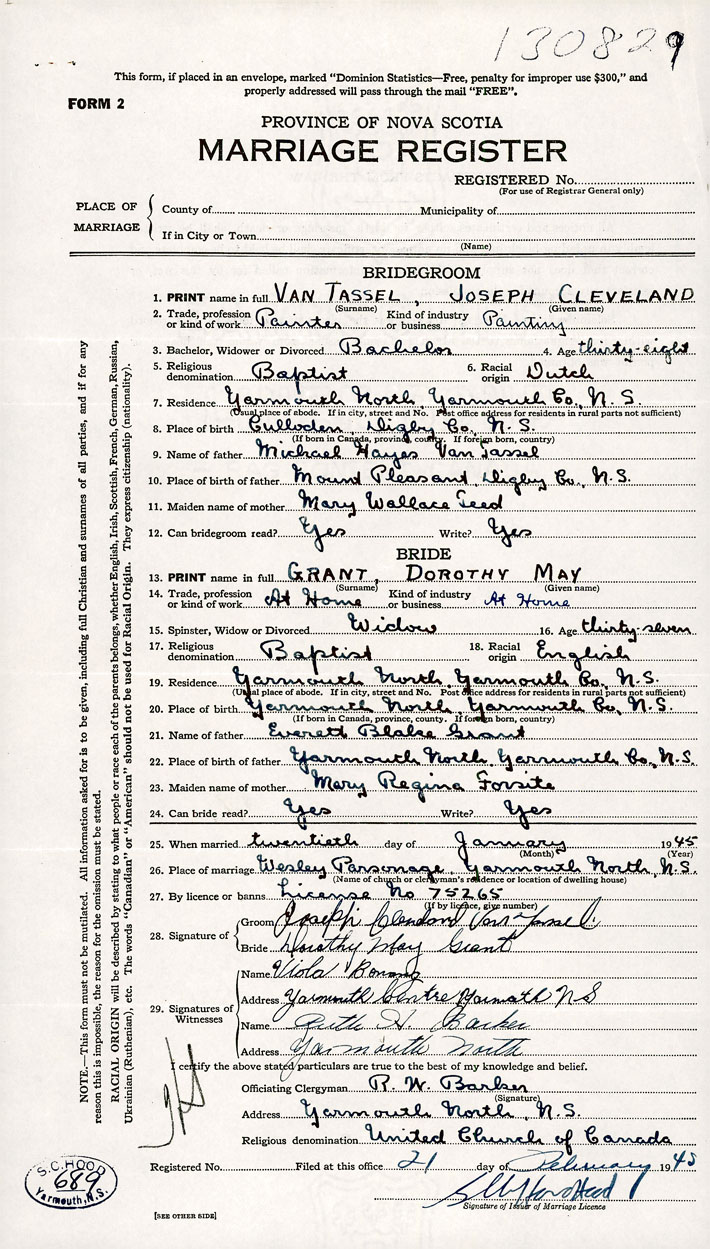 130829
This form, if placed in an envelope, marked "Dominion Statistics—Free, penalty for improper use $300," and
properly addressed will pass through the mail "FREE".
FORM 2
PROVINCE OF NOVA SCOTIA
MARRIAGE REGISTER
REGISTERED No.
(For use of Registrar General only)
PLACE OF MARRIAGE
County of Municipality of
If in City or Town
(Name)
BRIDEGROOM
1. PRINT name in full VAN TASSEL, JOSEPH CLEVELAND
(Surname) (Given name)
2. Trade, profession or kind of work Painter Kind of industry or business Painting
3. Bachelor, Widower or Divorced Bachelor 4. Age thirty-eight
5. Religious denomination Baptist 6. Racial origin Dutch
7. Residence Yarmouth North, Yarmouth Co., N.S.
(Usual place of abode. If in city, street and No. Post office address for residents in rural parts not sufficient)
8. Place of birth Culloden, Digby Co., N.S.
(If born in Canada, province, county. If foreign born, country)
9. Name of father Michael Hayes Van Tassel
10. Place of birth of father Mount Pleasant, Digby Co., N.S.
11. Maiden name of mother Mary Wallace Teed
12. Can bridegroom read? Yes Write? Yes
BRIDE
13. PRINT name in full GRANT, DOROTHY MAY
(Surname) (Given name)
14. Trade, profession or kind of work At Home Kind of industry or business At Home
15. Spinster, Widow or Divorced Widow 16. Age thirty-seven
17. Religious denomination Baptist 18. Racial origin English
19. Residence Yarmouth North, Yarmouth Co., N.S.
(Usual place of abode. If in city, street and No. Post office address for residents in rural parts not sufficient)
20. Place of birth Yarmouth North, Yarmouth Co., N.S.
(If born in Canada, province, county. If foreign born, country)
21. Name of father Everett Blake Grant
22. Place of birth of father Yarmouth North, Yarmouth Co., N.S.
23. Maiden name of mother Mary Regina Forsite
24. Can bride read? Yes Write? Yes
25. When married twentieth day of January 1945
(Month) (Year)
26. Place of marriage Wesley Parsonage, Yarmouth North, N.S.
(Name of church or clergyman's residence or location of dwelling house)
27. By licence or banns License No 75265
(If by licence, give number)
28. Signature of
Groom Joseph Van Tassel
Bride Dorothy May Grant
29. Signatures of Witnesses
Name Viola
Address Yarmouth Centre Yarmouth NS
Name Ruth H. Barker
Address Yarmouth North
I certify the above stated particulars are true to the best of my knowledge and belief.
Officiating Clergyman R. W. Barker
(Signature)
Address Yarmouth North, N.S.
Religious denomination United Church of Canada
Registered No. Filed at this office 21 day of February 1945
Signature of Issuer of Marriage Licence
[SEE OTHER SIDE]
S. C. HOOD
689
Yarmouth, N.S.
NOTE.—This form must not be mutilated. All information asked for is to be given, including full Christian and surnames of all parties, and if for any
reason this is impossible, the reason for the omission must be stated.
RACIAL ORIGIN will be described by stating to what people or race each of the parents belongs, whether English, Irish, Scottish, French, German, Russian,
Ukrainian (Ruthenian), etc. The words "Canadian" or "American" should not be used for Racial Origin. They express citizenship (nationality).